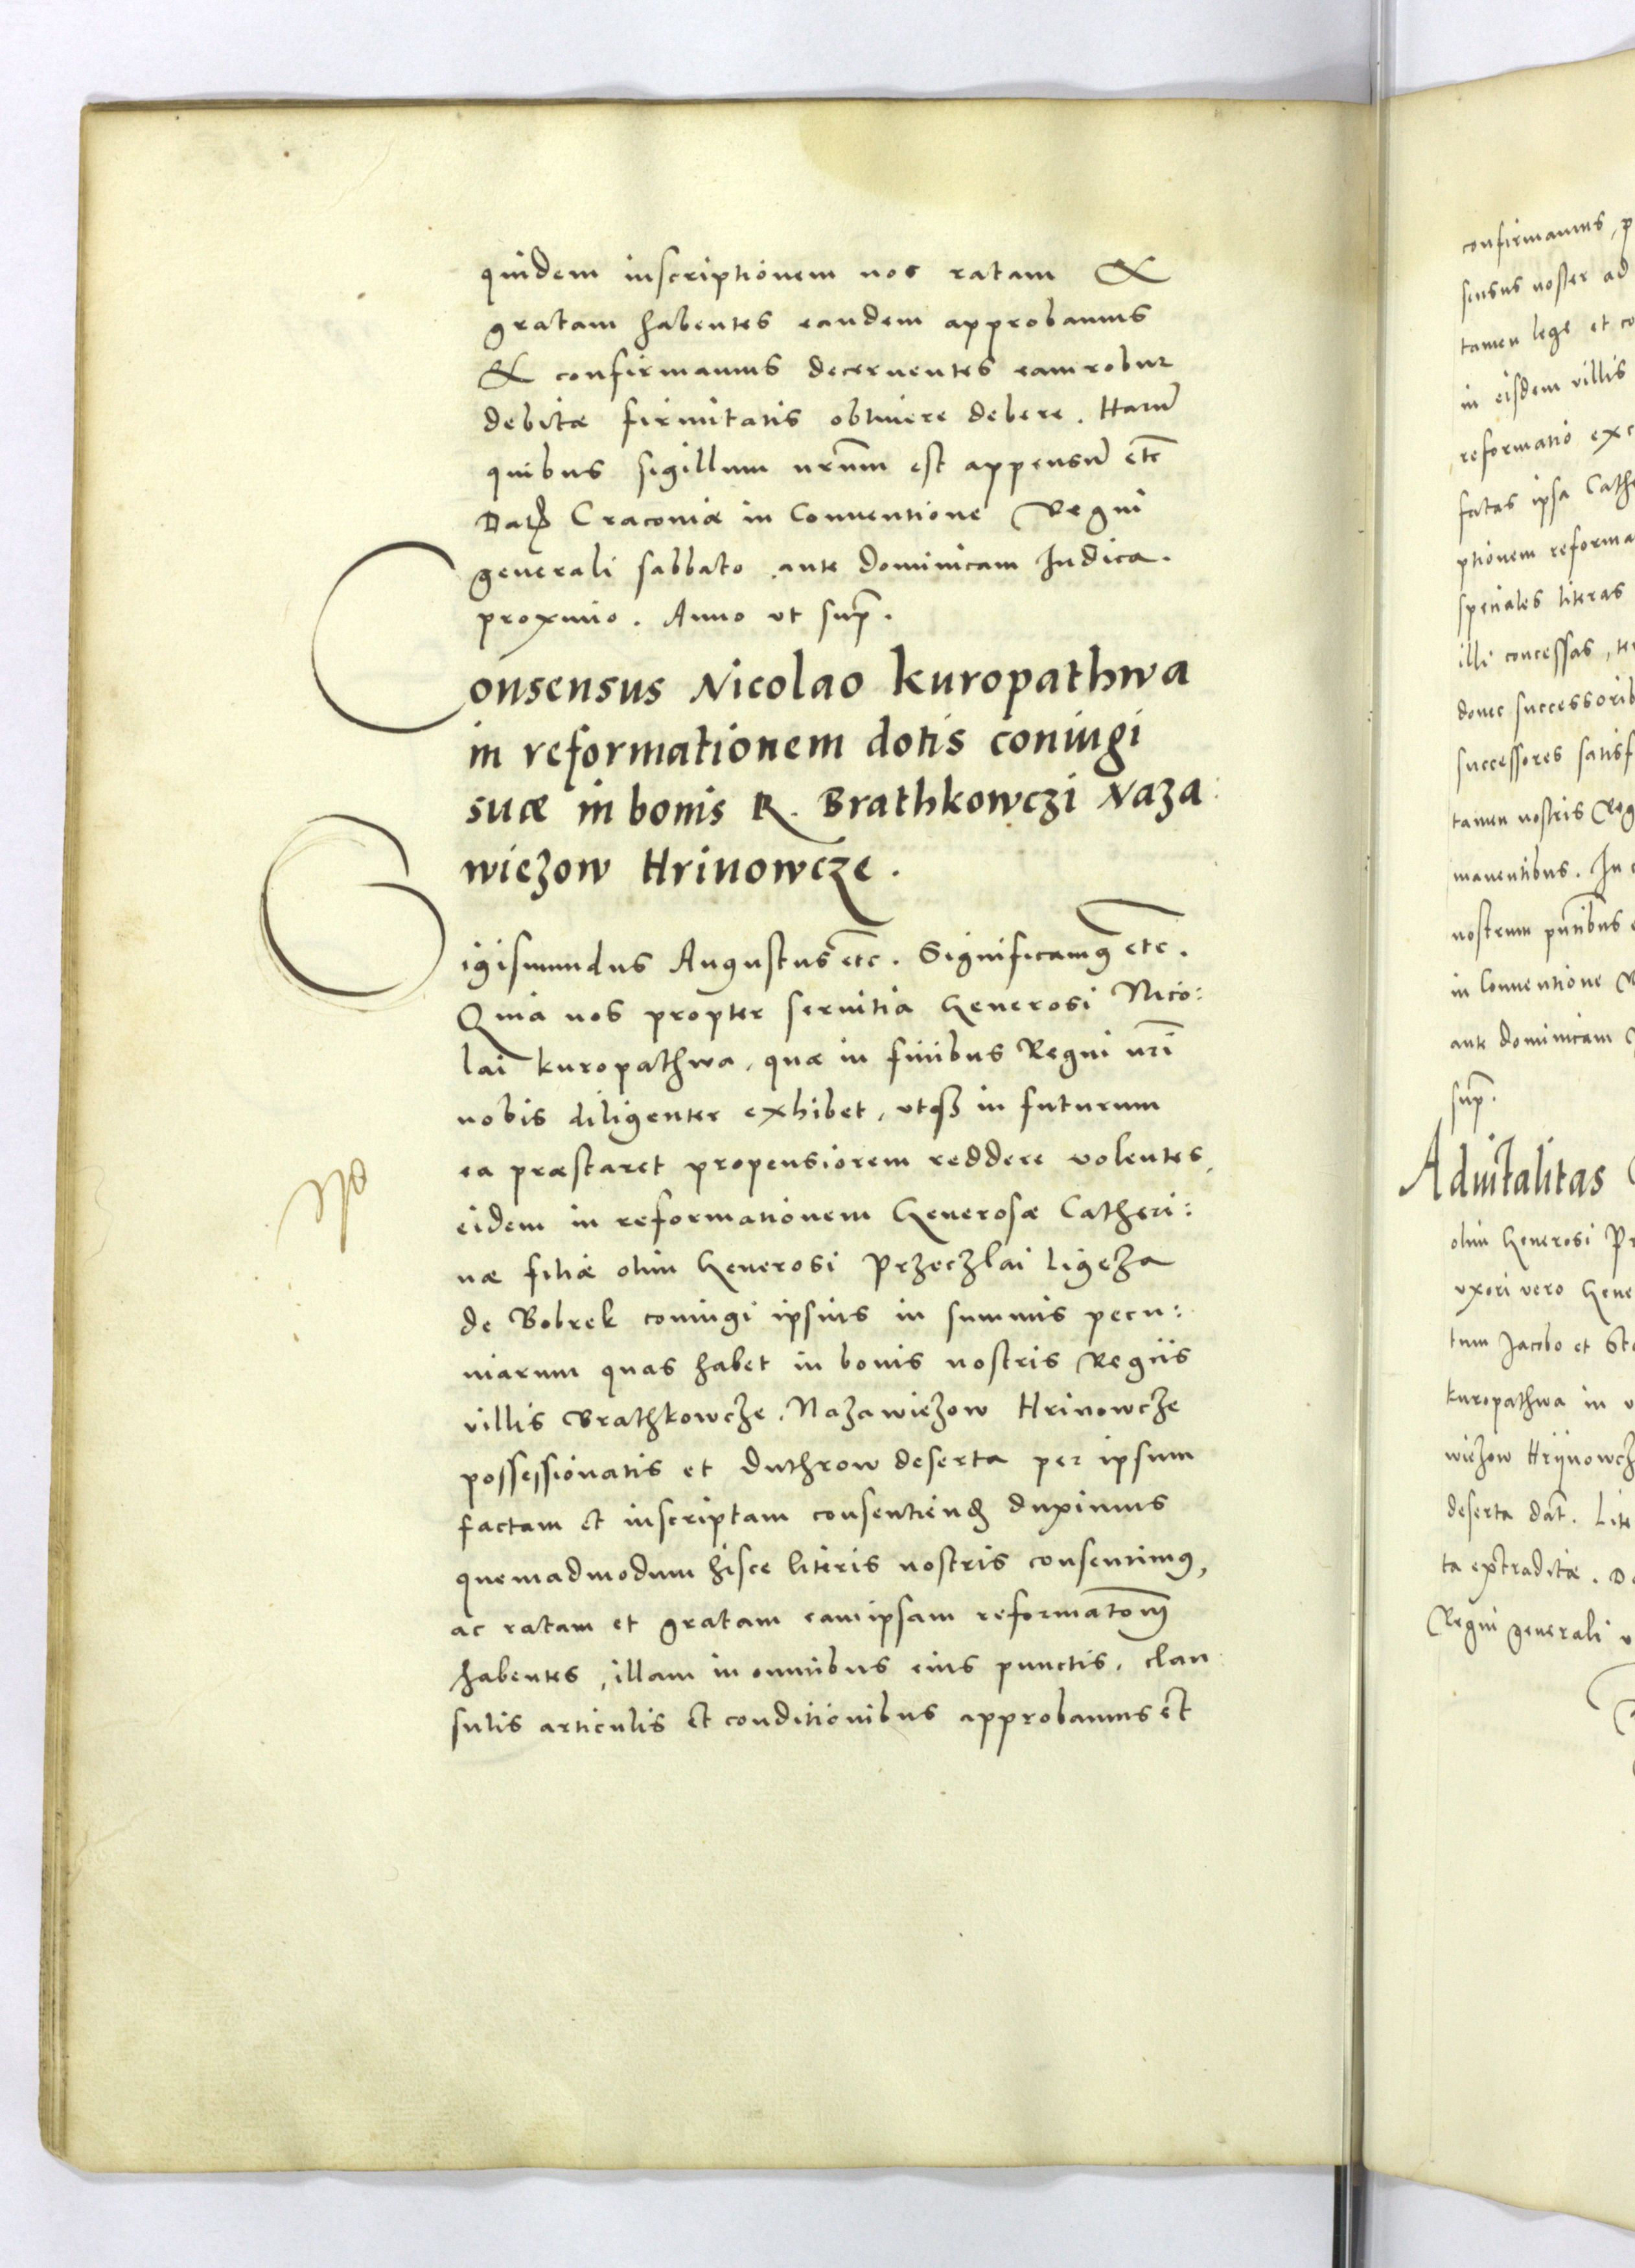 quidem inscriptionem nos ratam &
gratam habentes eandem approbamus
& confirmamus decernentes eam robur
debitæ firmitatis obtinere debere. Harū
quibus sigillum nr̄um est appensū etc
Datȝ Cracoviæ in Conventione Regni
generali sabbato ante Dominicam Iudica.
proximo. Anno ut sup̄.
Consensus Nicolao kuropathwa
in reformationem dotis coniugi
suæ in bonis R. Brathkowczi Naza:
wiezow Hrinowcze.
Sigismundus Augustus etc. Significamꝰ etc.
Quia nos propter servitia Generosi Nico:
lai kuropathwa, quæ in finibus Regni nr̄i
nobis diligenter exhibet, utqꝫ in futurum
ea præstaret propensiorem reddere volentes,
eidem in reformationem Generosæ Catheri:
næ filiæ olim Generosi Przeczlai Ligeza
de Bobrek coniugi ipsius in summis pecu:
niarum quas habet in bonis nostris Regiis
villis Brathkowcze, Nazawiezow Hrinowcze
possessionatis et Duthrow deserta per ipsum
factam et inscriptam consentiendȝ duximus
quemadmodum hisce literis nostris consentimꝰ,
ac ratam et gratam eam ipsam reformatōnē
habentes, illam in omnibus eius punctis, clau:
sulis articulis et conditionibus approbamus et
confirmamus, p
sensus noster ad
tamen lege et co
in eisdem villis
reformatio exc
fatas ipsa Cathe
ptionem reforma
speciales literas
illi concessas, te
donec successorib
successores satisf
tamen nostris Reg
manentibus. In c
nostrum pn̄tibus
in Conventione R
ante dominicam
sup̄.
Advitalitas
olim Generosi Pr
uxori vero Gene
tum Jacobo et Sta
kuropathwa in v
wiezow Hrijnowcz
deserta dat̄. Lite
ta extraditæ. Da
Regni generali v